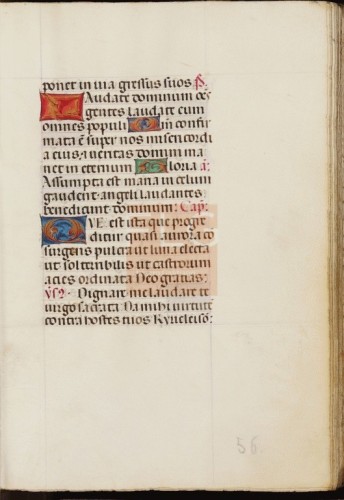 ponet in uia gressus suos. Ps.
Laudate dominum oēs
gentes laudate eum
omnes populi Qm̄ confir
mata ē super nos misericordi
a eius: et ueritas domini ma
net in eternum Gloria a:
Assumpta est maria in celum
gaudent angeli laudantes
benedicunt dominum: Cap:
QVE est ista que progre
ditur quasi aurora co
surgens pulcra ut luna electa
ut sol terribilis ut castrorum
acies ordinata Deo gratias:
Dignare me laudare te
uirgo sacrata Da mihi uirtutē
contra hostes tuos Kyrieleisō:
56